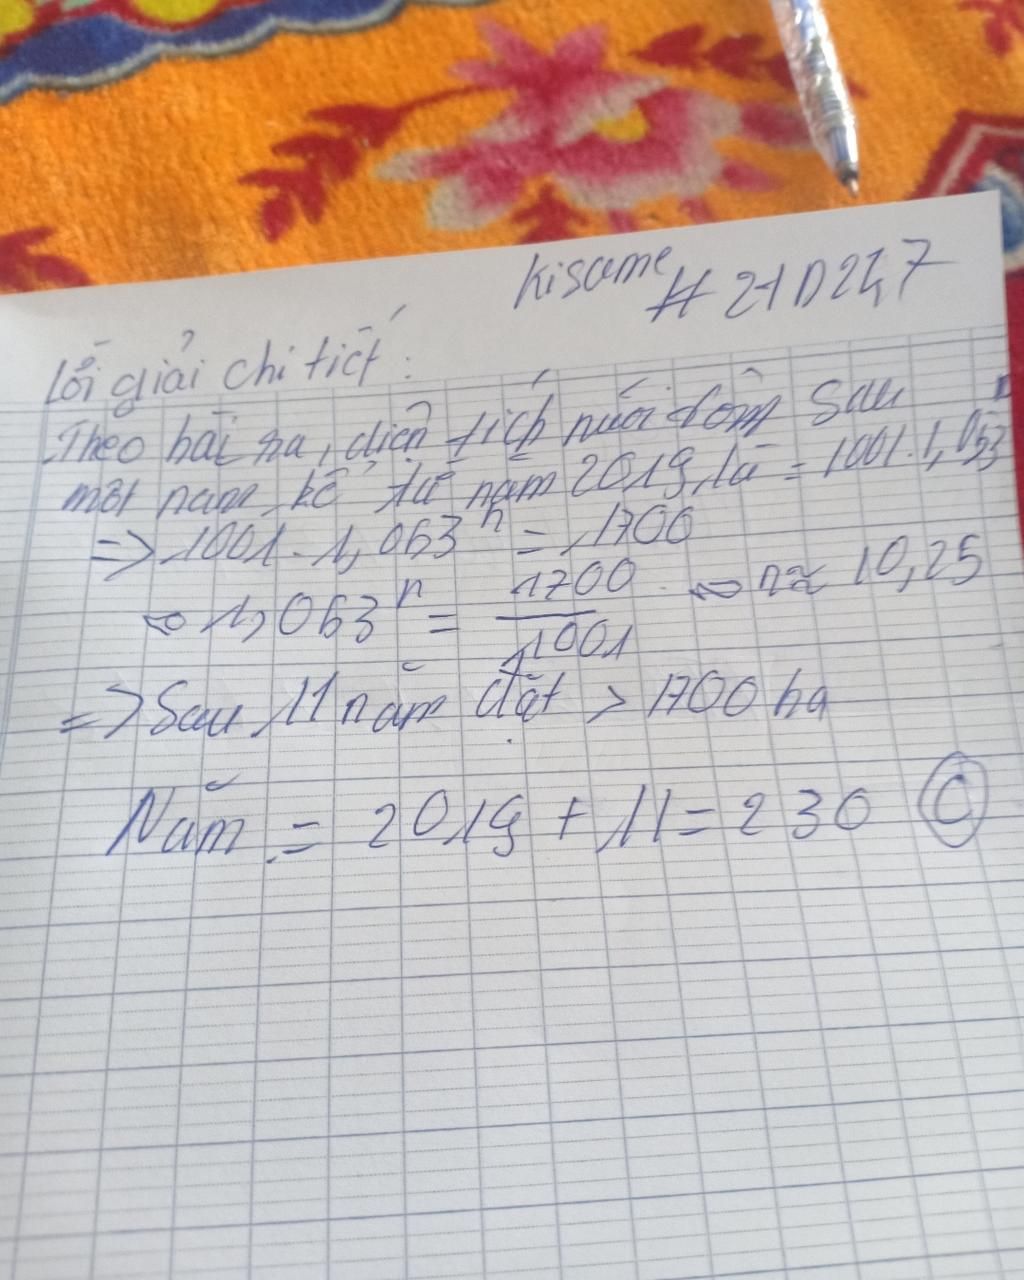 Kisame # 21D247
Lời giải chi tiết:
Theo bài ra, diện tích nuôi tôm sau
một năm kể từ năm 2019 là = 1001.1,053
=> 1001. 1,063ⁿ = 1700
⇔ 1,063ⁿ = 1700/1001 ⇔ n≈ 10,25
=> Sau 11 năm đạt > 1700 ha
Năm = 2019 + 11 = 230 C